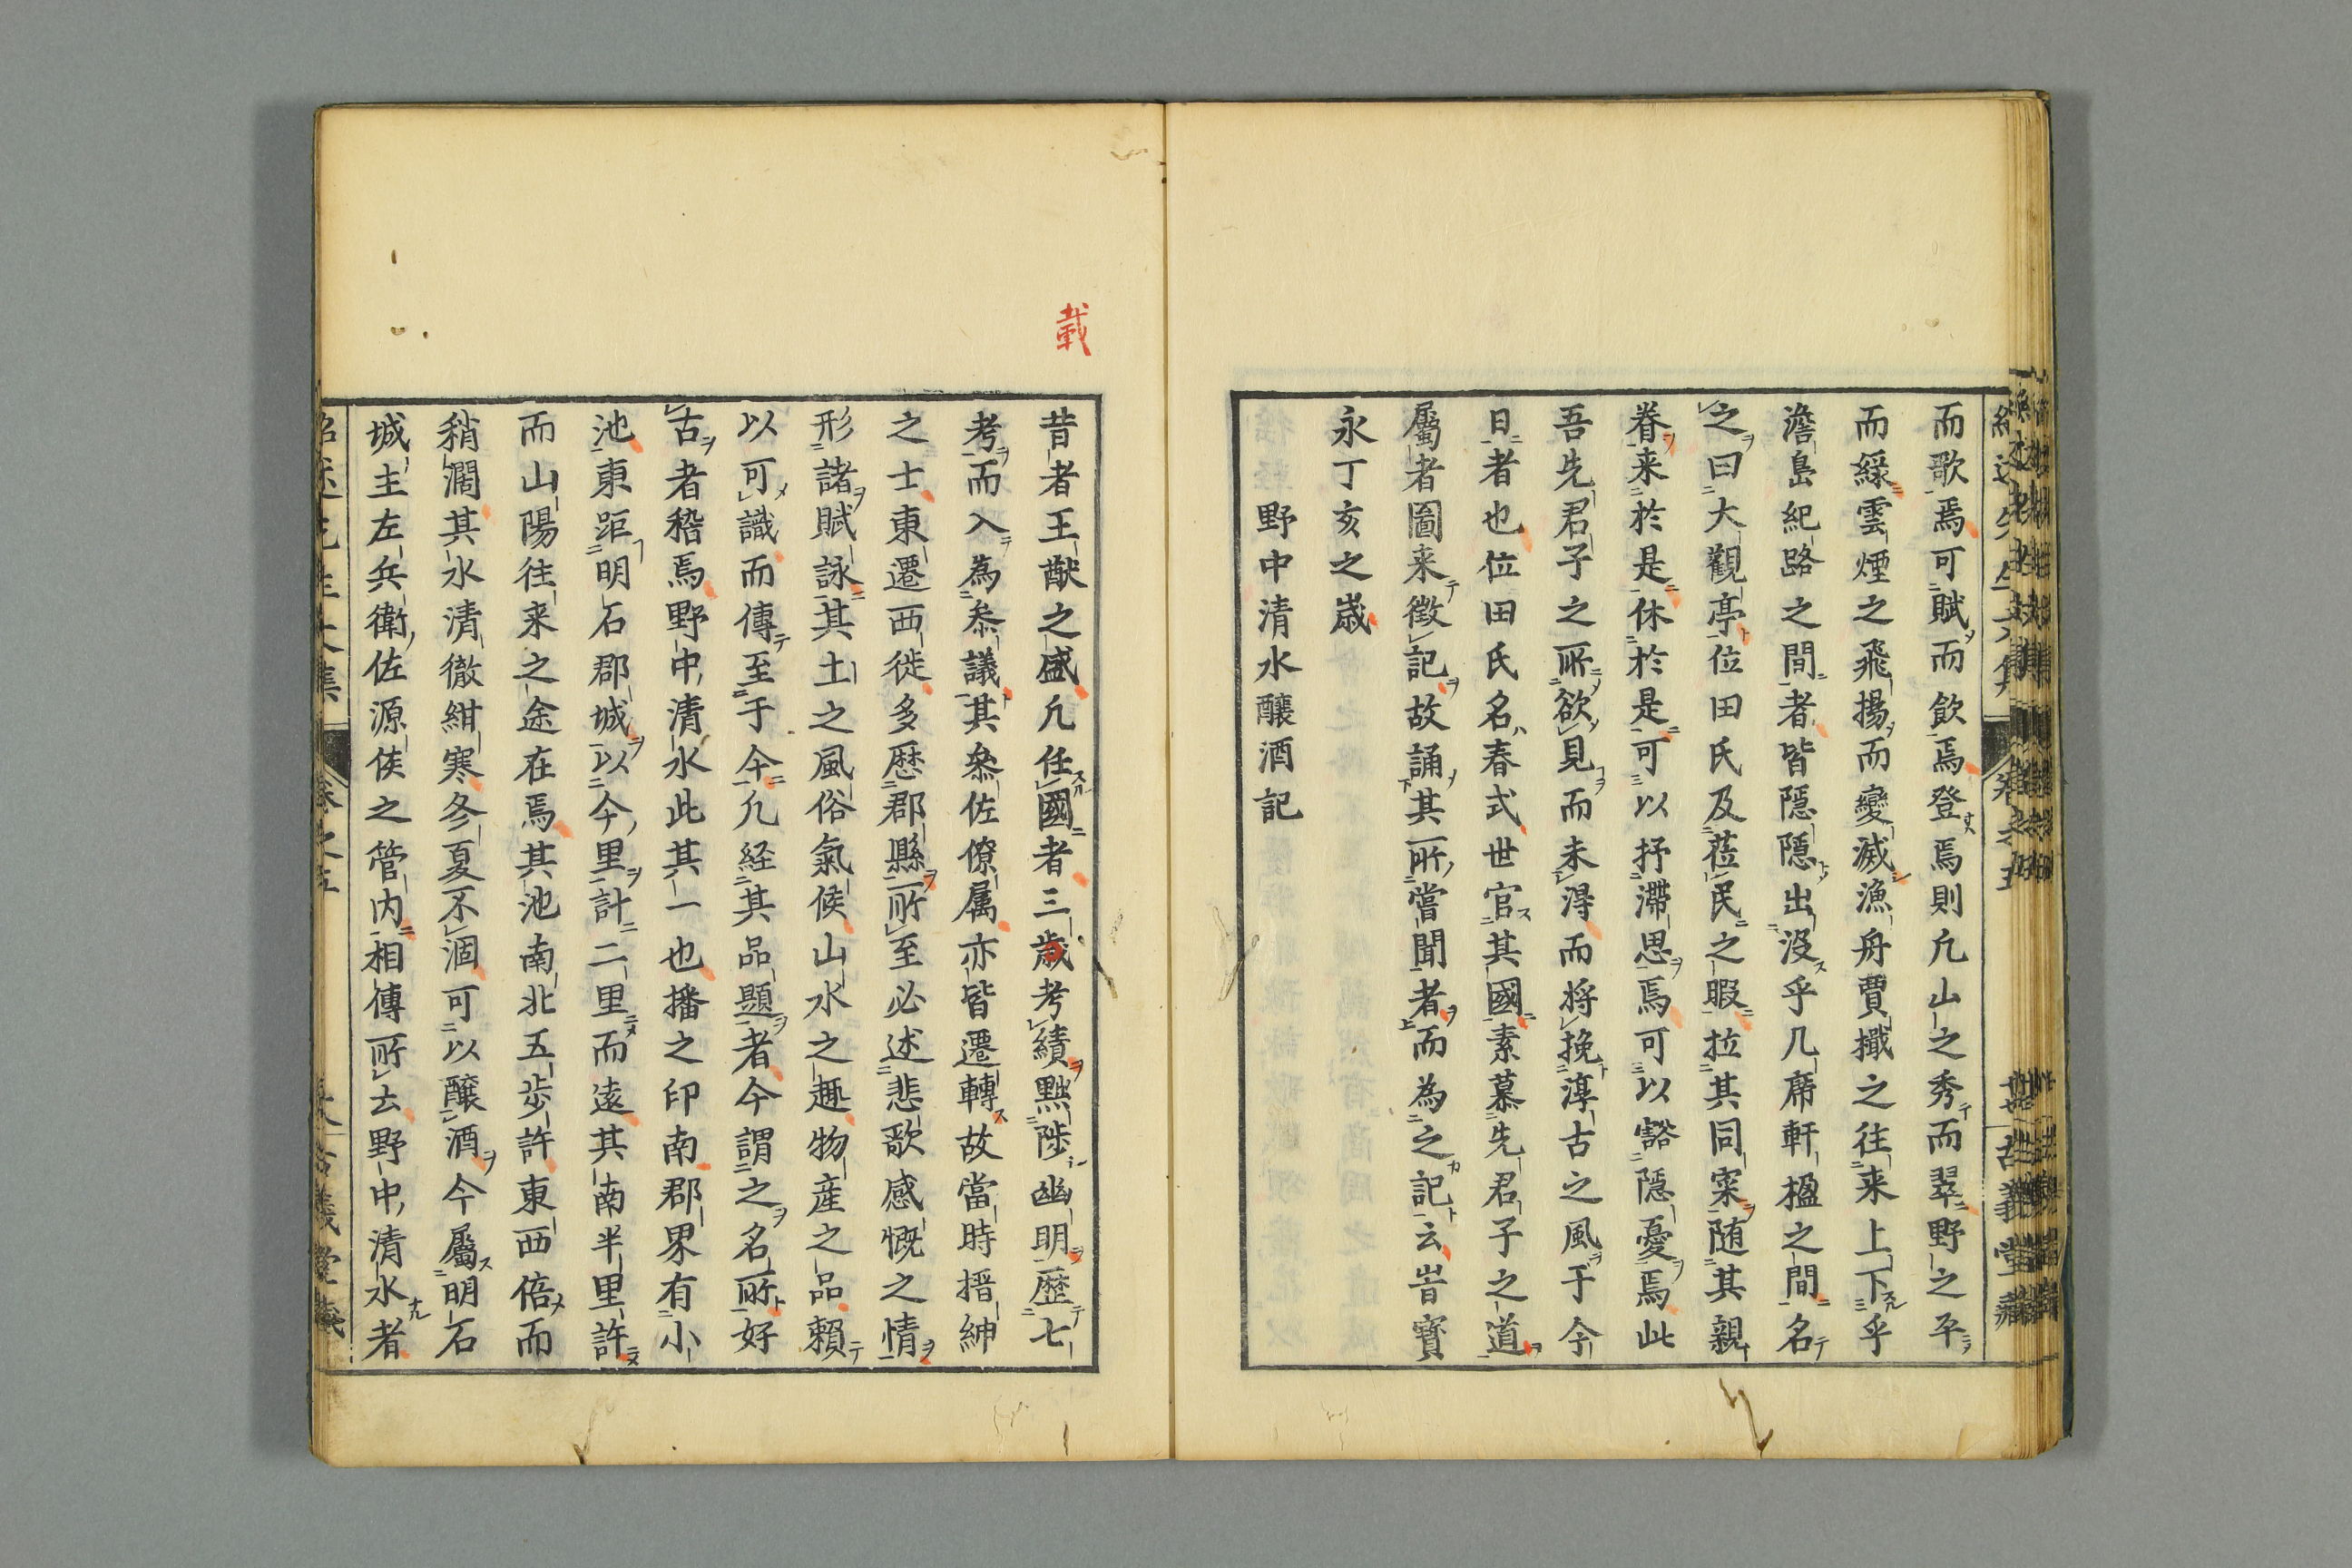 而歌焉可賦而飲焉登焉則凢山之秀而翠野之平
而綵雲煙之飛揚而變滅漁舟賈檝之往来上下乎
澹島紀路之間者皆隱隱出没乎几席軒楹之間名
之曰大觀亭位田氏及莅民之暇拉其同寀随其親
眷来於是休於是可以抒滯思焉可以豁隱憂焉此
吾先君子之所欲見而未得而将挽淳古之風于今
日者也位田氏名春式世官其國素慕先君子之道
屬者圖来徴記故誦其所嘗聞者而為之記云旹寳
永丁亥之歳
野中清水釀酒記
載
昔者王猷之盛凢任國者三歳考績黜陟幽明歴七
考而入為叅議其叅佐僚属亦皆遷轉故當時搢紳
之士東遷西徙多歴郡縣所至必述悲歌感慨之情
形諸賦詠其土之風俗氣候山水之趣物産之品頼
以可識而傳至于今凢経其品題者今謂之名所好
古者稽焉野中清水此其一也播之印南郡界有小
池東距明石郡城以今里計二里而遠其南半里許
而山陽往来之途在焉其池南北五歩許東西倍而
稍濶其水清徹紺寒冬夏不涸可以釀酒今屬明石
城主左兵衛佐源侯之管内相傳所云野中清水者